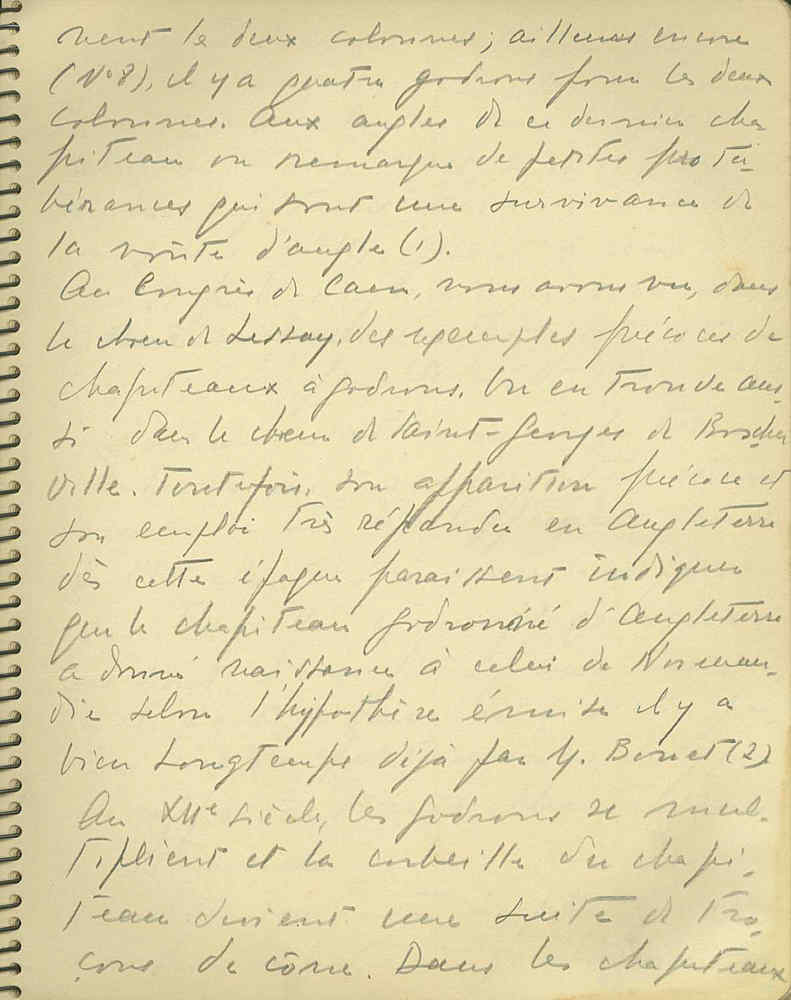 nent le deux colonnes; ailleurs encore
(N° 8), il y a quatre godrons pour les deux
colonnes. Aux angles de ce dernier cha
piteau on remarque de petites protu-
bérances qui sont une survivance de
la volute d'angle (1).
Au Congrès de Caen, nous avons vu, dans
le chœur de Lessay, des exemples précoces de
chapiteaux à godrons. On en trouve aus-
si dans le chœur de Saint-Georges de Boscher
ville. Toutefois, son apparition précoce et
son emploi très répandu en Angleterre
dès cette époque paraissent indiquer
que le chapiteau godronné d'Angleterre
a donné naissance à celui de Norman-
die selon l'hypothèse émise il y a
bien longtemps déjà par M. Bonet (2)
Au XIIe siècle, les godrons se mul-
tiplient et la corbeille du chapi-
teau devient une suite de tron-
çons de cône. Dans les chapiteaux